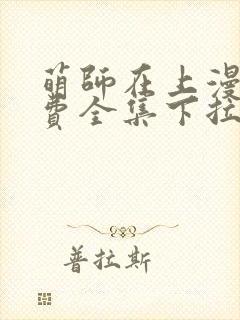 萌師在上漫
費全集下拉
普拉斯